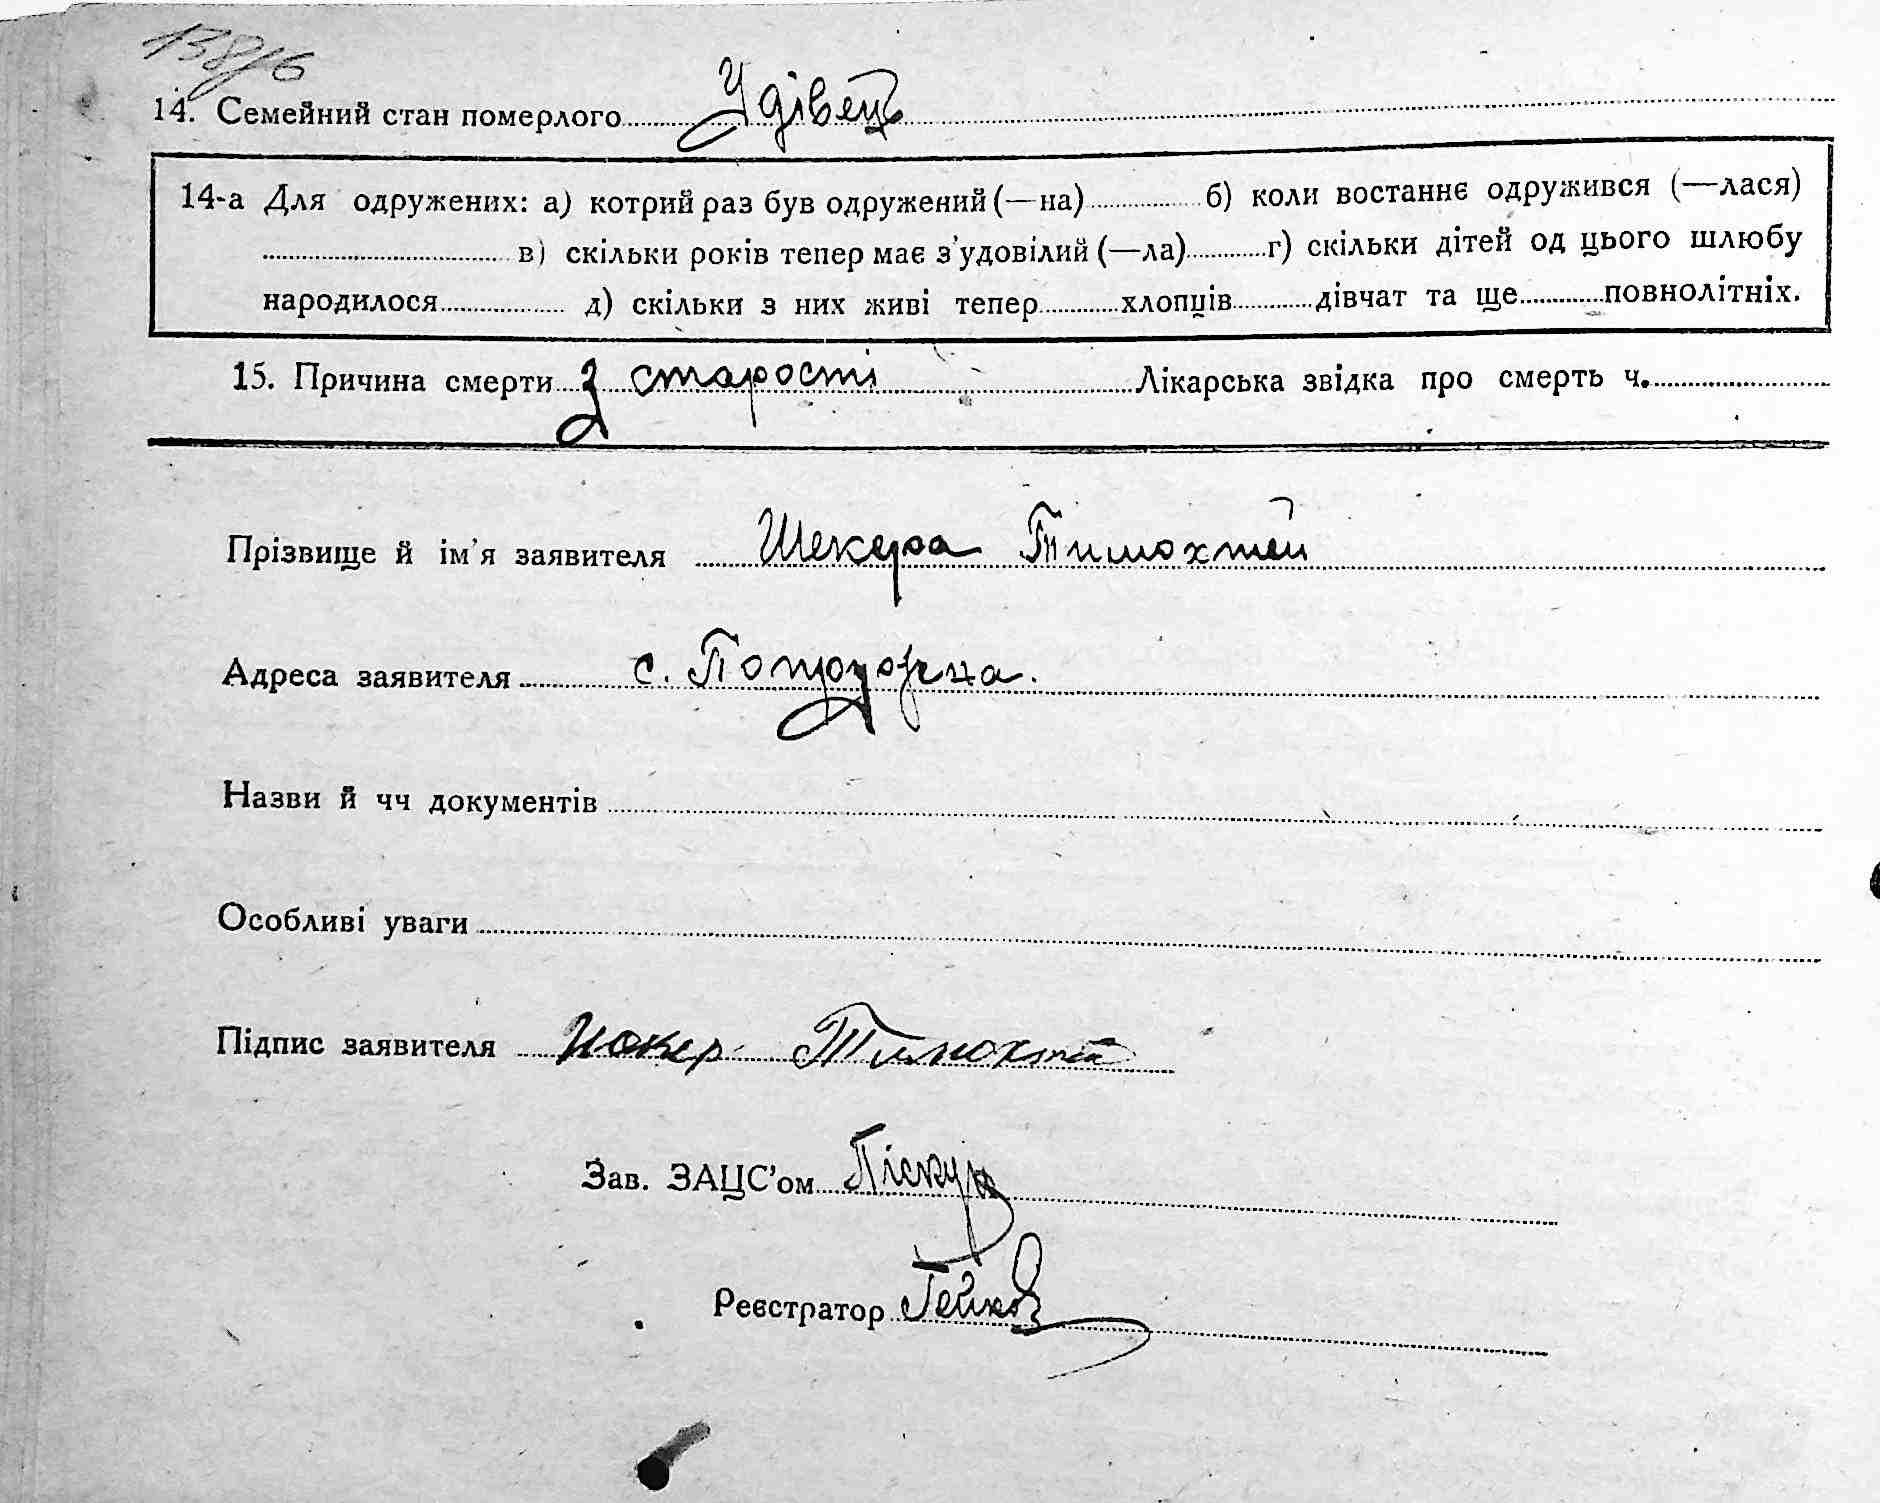 138/6
14. Семейний стан померлого Удівець
14-а Для одружених: а) котрий раз був одружений (—на) б) коли востаннє одружився (—лася)
в) скільки років тепер має з’удовілий (—ла) г) скільки дітей од цього шлюбу
народилося д) скільки з них живі тепер хлопців дівчат та ще повнолітніх.
15. Причина смерти З старості Лікарська звідка про смерть ч.
Прізвище й ім’я заявителя Шекера Тимохтей
Адреса заявителя с.
Назви й чч документів
Особливі уваги
Підпис заявителя Тимохтей
Зав. ЗАЦС’ом Піскун
Реєстратор